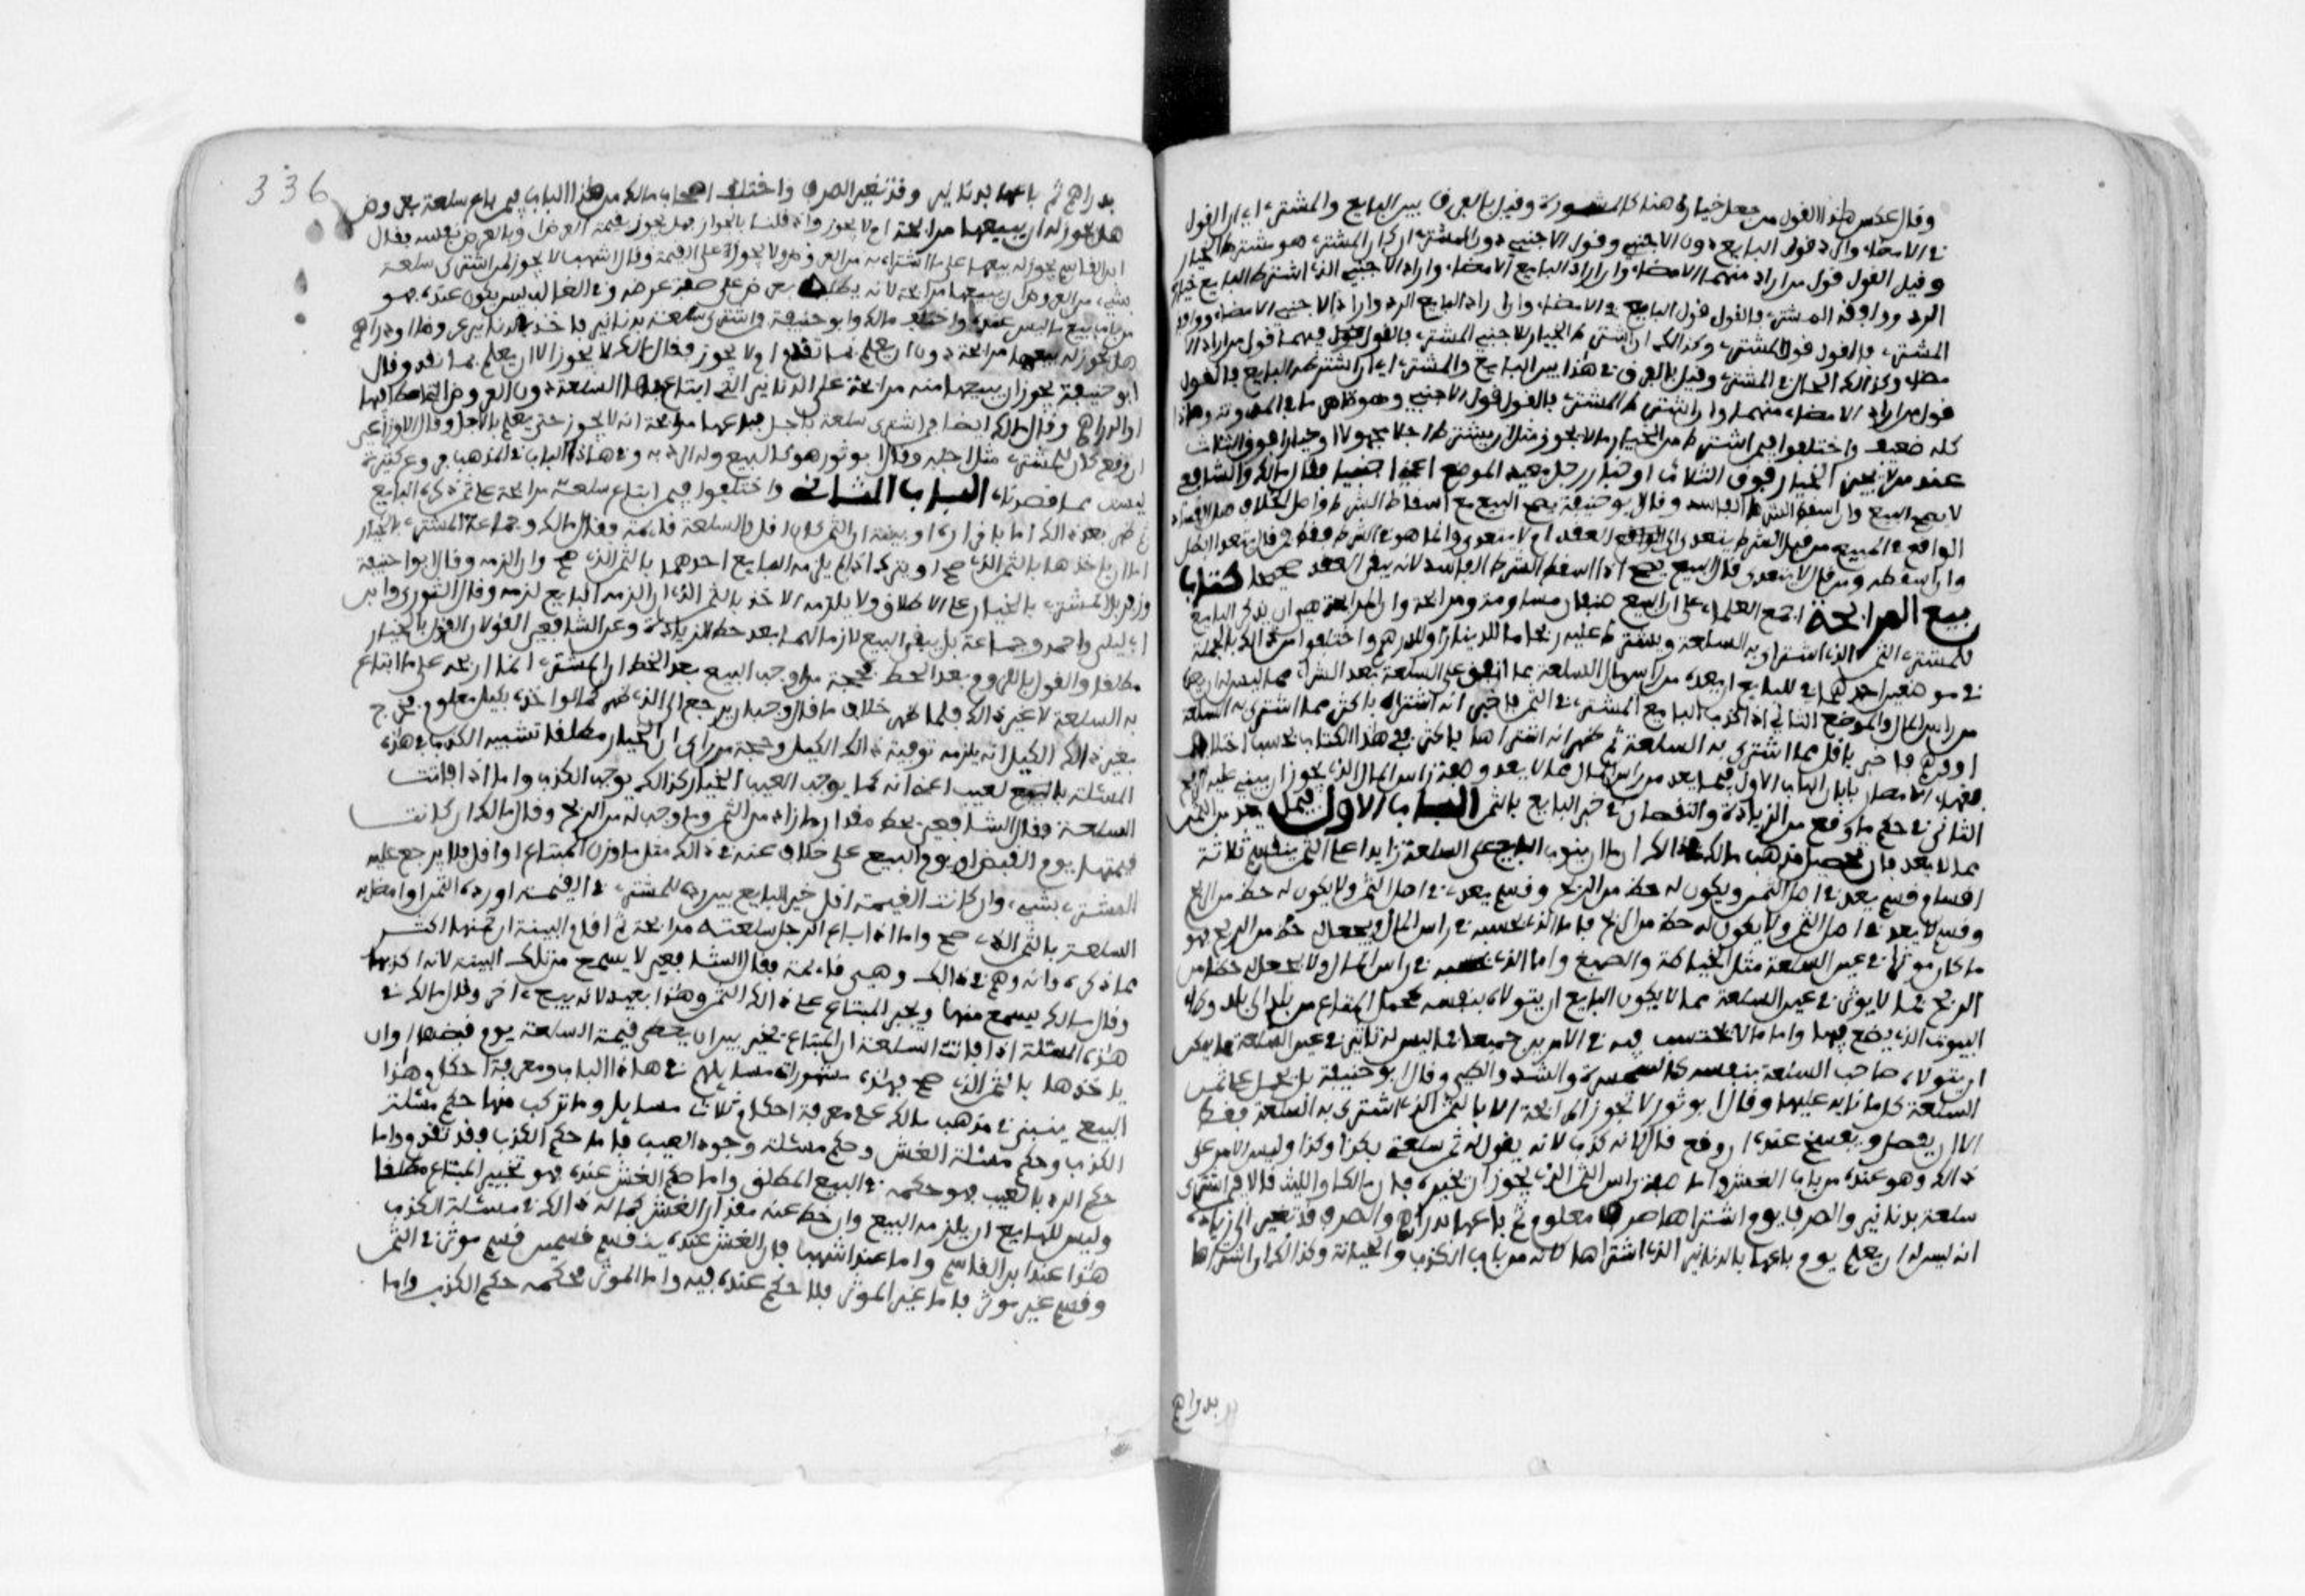 وقال عكس هذا القول من جعل خياره هنا كالمشورة وقيل بالفرق بين البايع والمشتري اي ان القول
في الامضاء والرد قول البايع دون الاجنبي وقول الاجنبي دون المشتري ان كان المشتري هو مشترط الخيار
وقيل القول قول من اراد منهما الامضاء وان اراد البايع الامضاء واراد الاجنبي الذي اشترط البايع خياره
الرد ووافقه المشتري فالقول قول البايع في الامضاء وان اراد البايع الرد واراد الاجنبي الامضاء ووافقه
المشتري فالقول قول المشتري وكذالك ان اشترط الخيار للاجنبي المشتري فالقول فيهما قول من اراد الا
مضاء وكذالك الحال في المشتري وقيل بالفرق في هذا بين البايع والمشتري اي ان اشترطه البايع فالقول
قول من اراد الامضاء منهما وان اشترطه المشتري فالقول قول الاجنبي وهو ظاهر ما في المدونة وهذا
كله ضعيف واختلفوا فيمن اشترط من الخيار ما لا يجوز مثل ان يشترط اجلا مجهولا او خيارا فوق الثلاث
عند من لا يجيز الخيار فوق الثلاث او خيار رجل بعيد الموضع اعني اجنبيا فقال مالك والشافعي
لا يصح البيع وان اسقط الشرط الفاسد وقال ابو حنيفة يصح البيع مع اسقاط الشرط واصل الخلاف هل الفساد
الواقع في البيع من قبل الشرط يتعدى الى العقد ام لا يتعدى وانما هو في الشرط فقط فمن قال يتعدى ابطل
وان اسقطه ومن قال لا يتعدى قال البيع يصح اذا اسقط الشرط الفاسد لانه يبقى العقد صحيحا كتاب
بيع المرابحة اجمع العلماء على ان البيع صنفان مساومة ومرابحة وان المرابحة هي ان يذكر البايع
للمشتري الثمن الذي اشترى به السلعة ويشترط عليه ربحا ما للدينار او للدرهم واختلفوا من ذالك بالجملة
في موضعين احدهما في ما للبايع ان يعده من راس مال السلعة مما انفق على السلعة بعد الشراء مما ليس له ان يعده
من راس المال والموضع الثاني اذا كذب البايع المشتري في الثمن فاخبر انه اشتراه باكثر مما اشترى به السلعة
او وهم فاخبر باقل مما اشترى به السلعة ثم ظهر انه اشتراها باكثر ففي هذا الكتاب بحسب اختلاف
فقهاء الامصار بابان الباب الاول فيما يعد من راس المال مما لا يعد وصفة راس المال الذي يجوز ان يبنى عليه الربح
الثاني في حكم ما وقع من الزيادة والنقصان في خبر البايع بالثمن الباب الاول فيما يعد من الثمن
مما لا يعد فان تحصيل مذهب مالك في ذالك ان ما ينوب البايع على السلعة زايدا على الثمن ينقسم ثلاثة
اقسام قسم يعد في اصل الثمن ويكون له حظ من الربح وقسم يعد في اصل الثمن ولا يكون له حظ من الربح
وقسم لا يعد في اصل الثمن ولا يكون له حظ من الربح فاما الذي يحسبه في راس المال ويجعل له حظ من الربح فهو
ما كان موثرا في عين السلعة مثل الخياطة والصبغ واما الذي يحسبه في راس المال ولا يجعل له حظا من
الربح فما لا يوثر في عين السلعة مما لا يكون البايع ان يتولاه بنفسه كحمل المتاع من بلد الى بلد وكراء
البيوت الذي يضع فيها واما ما لا يحتسب فيه في الامرين جميعا فما ليس له تاثير في عين السلعة مما يمكن
ان يتولاه صاحب السلعة بنفسه كالسمسرة والشد والطي وقال ابو حنيفة بل يحمل على ثمن
السلعة كل ما نابه عليها وقال ابو ثور لا تجوز المرابحة الا بالثمن الذي اشترى به السلعة فقط
الا ان يفصل ويفسخ عنده ان وقع قال لانه كذب لانه يقول له ثمن سلعتي بكذا وكذا وليس الامر على
ذالك وهو عنده من باب الغش واما صفة راس الثمن الذي يجوز ان يخبر به فان مالكا والليث قالا فيمن اشترى
سلعة بدنانير والصرف يوم اشتراها صرف معلوم ثم باعها بدراهم والصرف قد تغير الى زيادة
انه ليس له ان يعلم يوم باعها بالدنانير الذي اشتراها لانه من باب الكذب والخيانة وكذالك ان اشتراها
بدراهم
336
بدراهم ثم باعها بدنانير وقد تغير الصرف واختلف اصحاب مالك من هذا الباب فيمن باع سلعة بعروض
هل يجوز له ان يبيعها مرابحة ام لا يجوز واذا قلنا بالجواز فهل يجوز بقيمة العرض او بالعرض نفسه فقال
ابن القاسم يجوز له بيعها على ما اشتراه به من العروض ولا يجوز على القيمة وقال اشهب لا يجوز لمن اشترى سلعة
بشيء من العروض ان يبيعها مرابحة لانه يطلبه بعرض على صفة عرضه وفي الغالب ليس يكون عنده فهو
من باب بيع ما ليس عنده واختلف مالك وابو حنيفة في من اشترى سلعة بدنانير فاخذ بالدنانير عروضا او دراهم
هل يجوز له بيعها مرابحة دون ان يعلم بما نقد ام لا يجوز فقال مالك لا يجوز الا ان يعلم بما نقد وقال
ابو حنيفة يجوز ان يبيعها منه مرابحة على الدنانير التي ابتاع بها السلعة دون العروض التي اعطا فيها
او الدراهم وقال مالك ايضا فيمن اشترى سلعة باجل فباعها مرابحة انه لا يجوز حتى يعلم بالاجل وقال الاوزاعي
ان وقع كان للمشتري مثل اجله وقال ابو ثور هو كالبيع وله الرد به وفي هذا الباب في المذهب فروع كثيرة
ليست مما قصدناه الباب الثاني واختلفوا فيمن ابتاع سلعة مرابحة على ثمن ذكره البايع
ثم ظهر بعد ذالك اما باقراره او ببينة ان الثمن كان اقل والسلعة قايمة فقال مالك وجماعة المشتري بالخيار
اما ان ياخذها بالثمن الذي صح او يترك اذا لم يلزمه البايع اخذها بالثمن الذي صح وان الزمه وقال ابو حنيفة
وزفر بل المشتري بالخيار على الاطلاق ولا يلزمه الاخذ بالثمن الذي ان الزمه البايع لزمه وقال الثوري وابن
ابي ليلى واحمد وجماعة بل يبقى البيع لازما لهما بعد حط الزيادة وعن الشافعي القولان القول بالخيار
مطلقا والقول باللزوم بعد الحط فحجة من اوجب البيع بعد الحط ان المشتري انما اربحه على ما ابتاع
به السلعة لا غير ذالك فلما ظهر خلاف ما قال وجب ان يرجع الى الذي ظهر كما لو اخذه بكيل معلوم فخرج
بغير ذالك الكيل انه يلزمه توفية ذالك الكيل وحجة من راى ان الخيار مطلقا تشبيه الكذب في هذه
المسئلة بالعيب اعني انه كما يوجب العيب الخيار كذالك يوجب الكذب واما اذا فاتت
السلعة فقال الشافعي يحط مقدار ما زاد من الثمن وما وجب له من الربح وقال مالك ان كانت
قيمتها يوم القبض او يوم البيع على خلاف عنه في ذالك مثل ما وزن المبتاع او اقل فلا يرجع عليه
المشتري بشيء وان كانت القيمة اقل خير البايع بين رده للمشتري القيمة او رده الثمن او امضايه
السلعة بالثمن الذي صح واما اذا باع الرجل سلعته مرابحة ثم اقام البينة ان ثمنها اكثر
مما ذكره وانه وهم في ذالك وهي قايمة فقال الشافعي لا يسمع من تلك البينة لانه كذبها
وقال مالك يسمع منها ويجبر المبتاع على ذالك الثمن وهذا بعيد لانه بيع اخر وقال مالك في
هذه المسئلة اذا فاتت السلعة ان المبتاع مخير بين ان يعطي قيمة السلعة يوم قبضها او ان
ياخذها بالثمن الذي صح فهذه مشهورات مسايلهم في هذا الباب ومعرفة احكام هذا
البيع ينبني في مذهب مالك على معرفة احكام ثلاث مسايل وما تركب منها حكم مسئلة
الكذب وحكم مسئلة الغش وحكم مسئلة وجود العيب فاما حكم الكذب فقد تقدم واما
حكم الرد بالعيب فهو حكمه في البيع المطلق واما حكم الغش عنده فهو تخيير المبتاع مطلقا
وليس للبايع ان يلزمه البيع وان حط عنه مقدار الغش كما له ذالك في مسئلة الكذب
هذا عند ابن القاسم واما عند اشهب فان الغش عنده ينقسم قسمين قسم موثر في الثمن
وقسم غير موثر فاما غير الموثر فلا حكم عنده فيه واما الموثر فحكمه حكم الكذب واما